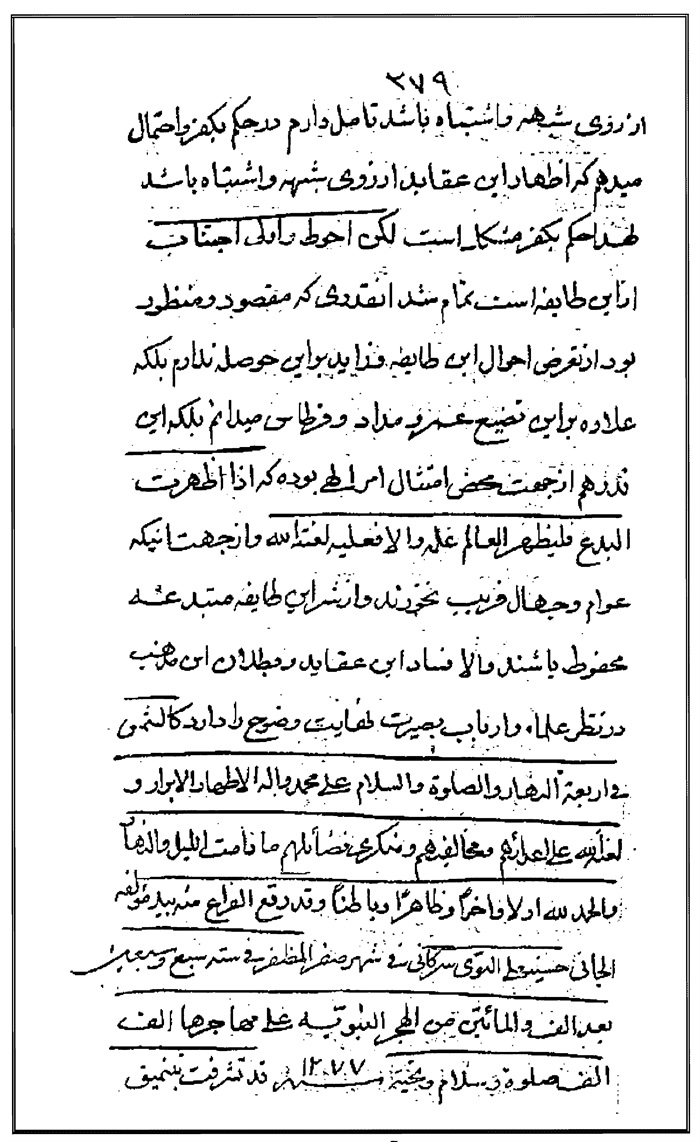 ٣٧٩
از روی شبهه و اشتباه باشد تامل دارم در حکم بکفر و احتمال
میدهم که اظهار این عقاید از روی شبهه و اشتباه باشد
لهذا حکم بکفر مشکل است لکن احوط و اولی اجتناب
از این طایفه است تمام شد انقدری که مقصود و منظور
بود از تعرض احوال این طایفه و زاید بر این حوصله ندارم بلکه
علاوه بر این تضییع عمر و مداد و قرطاس میدانم بلکه این
قدر هم از جهت محض امتثال امر الهی بوده که اذا ظهرت
البدع فلیظهر العالم علمه و الا فعلیه لعنة الله و از جهت انیکه
عوام و جهال فریب نخورند و از شر این طایفه مبتدعه
محفوظ باشند و الا فساد این عقاید و بطلان این مذهب
در نظر علماء و ارباب بصیرت نهایت وضوح را دارد کالشمس
فی اربعة النهار و الصلوة و السلام علی محمد و اله الاطهار الابرار و
لعنة الله علی اعدائهم و مخالفیهم و منکری فضائلهم ما دامت اللیل و النهار
و الحمد لله اولا و اخرا و ظاهرا و باطنا و قد وقع الفراغ منه بید مؤلفه
الجانی حسینعلی التوی سرکانی فی شهر صفر المظفر فی سنه سبع و سبعین
بعد الف و المأتین من الهجر النبویه علی مهاجرها الف
الف صلوة و سلام و تحیة ١٢٧٧ قد تشرفت بتنمیق